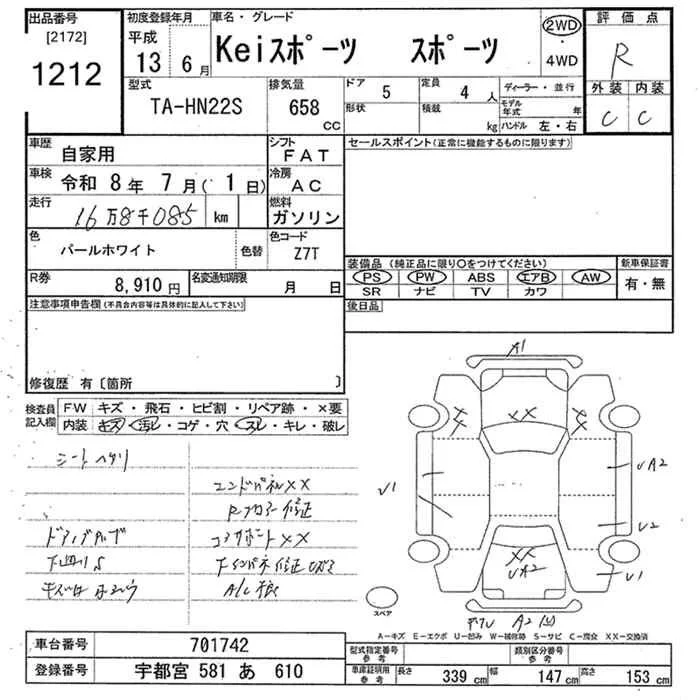 出品番号
[2172]
1212
初度登録年月
平成
13 6月
車名・グレード
Keiスポーツ スポーツ
2WD
・
4WD
評価点
R
外装 内装
C C
型式
TA-HN22S
排気量
658
CC
ドア
5
定員
4 人
形状
積載
kg
ディーラー・並行
モデル年式 年
ハンドル 左・右
車歴
自家用
シフト
FAT
車検
令和 8年 7月( 1日)
冷房
AC
走行
16万8千085 km
燃料
ガソリン
色
パールホワイト
色替
色コード
Z7T
R券
8,910円
名変通知期限
月 日
セールスポイント(正常に機能するものに限ります)
装備品(純正品に限り○をつけてください)
PS PW ABS エアB AW
SR ナビ TV カワ
新車保証書
有・無
後日品
注意事項申告欄(不具合内容等は具体的に記入して下さい)
修復歴 有〔箇所 〕
検査員記入欄
FW キズ・飛石・ヒビ割・リペア跡・×要
内装 キズ・汚レ・コゲ・穴・スレ・キレ・破レ
シートヘタリ
エンドパネXX
Rフロアー修正
コアサポートXX
下廻りS
A1
XX
XX
XX
U1
UA2
U2
U1
XX
UA2
A2
スペア
A-キズ E-エクボ U-凹み W-補修跡 S-サビ C-腐食 XX-交換済
車台番号
701742
登録番号
宇都宮 581 あ 610
型式指定番号
参考
類別区分番号
参考
車庫証明用
参考
長さ 339 cm 幅 147 cm 高さ 153 cm